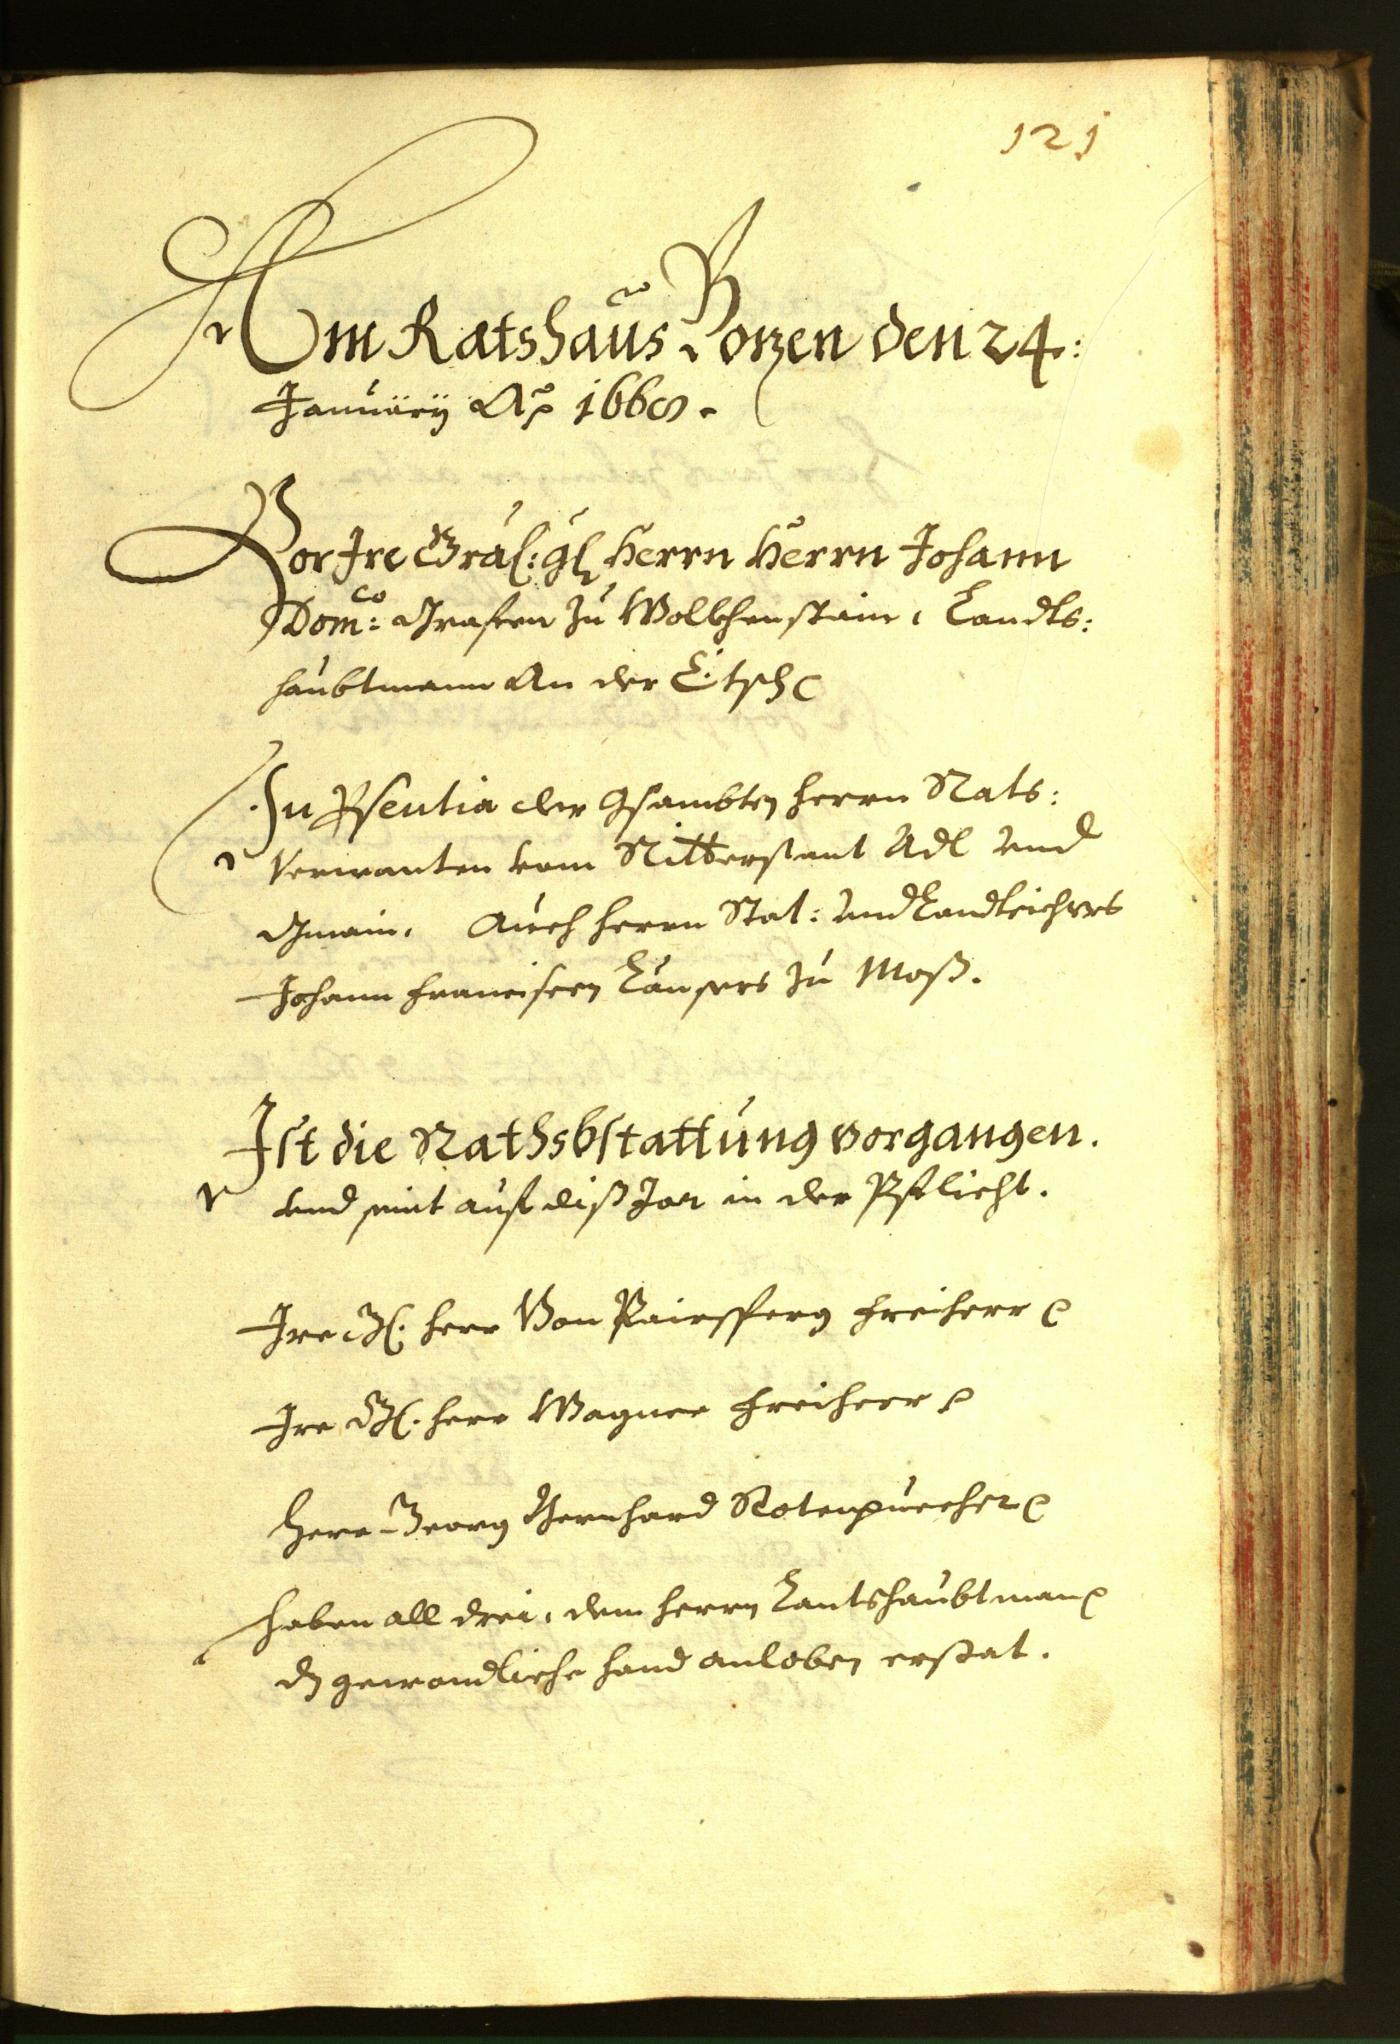 121
Am Ratshaus Botzen den 24:
January Ao 1668.
Vor Ire Gräf: gl Herrn Herrn Johann
Domco: Grafen zu Wolkhenstain, Landts:
haubtmann An der Etsch
In Psentia der Gsambten herrn Rats:
Verwanten vom Ritterstant Adl und
Gmain. Auch herrn Stat: und Landtrichters
Johann Francisen zu Moß.
Ist die Rathsbstattung vorgangen.
und seint auf diß Jar in der Pflicht.
Ire G. herr Von Freiherr
Ire G. herr Wagner Freiherr
Herr Georg Bernhard Rotenpuecher
haben all drei, dem herrn Lantshaubtman
dz gewondliche hand anloben erstat.